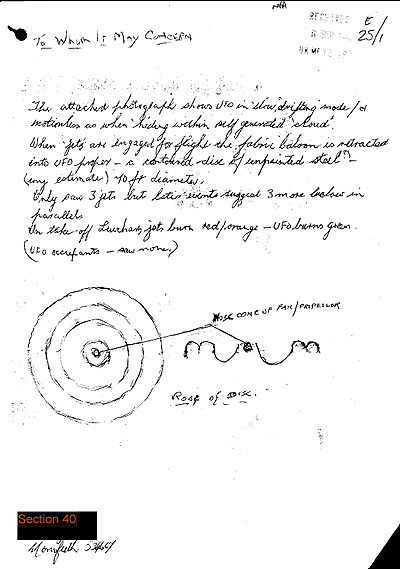 E
25/1
RECEIVED
To Whom It May Concern
The attached photograph shows UFO in "slow, drifting" mode/or
motionless as when hiding within self generated "cloud".
When jets are engaged for flight the fabric baloon is retracted
into UFO proper – a contoured disc of unpainted steel? –
(my estimate) 70 ft diameter.
Only saw 3 jets but later events suggest 3 more below in
parallels
On take-off Launch jets burn red/orange – UFO burns green.
(UFO occupants – saw none)
NOSE CONE OF FAN/PROPELLOR
Roof of Disc.
Section 40
Monifieth